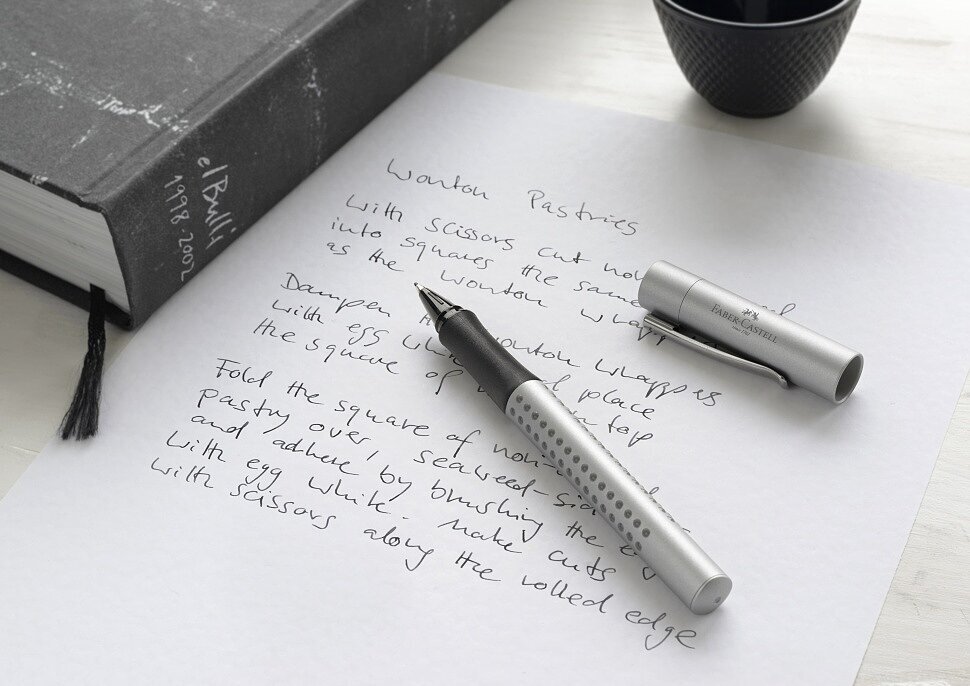 elBulli
1998-2002
Wonton Pastries
With scissors cut
into squares the same
as the wonton
Dampen wonton wrappers
with egg place
the square of top
Fold the square of
pastry over, seaweed-
and adhere by brushing the
with egg white. Make cuts
with scissors along the rolled edge
FABER-CASTELL